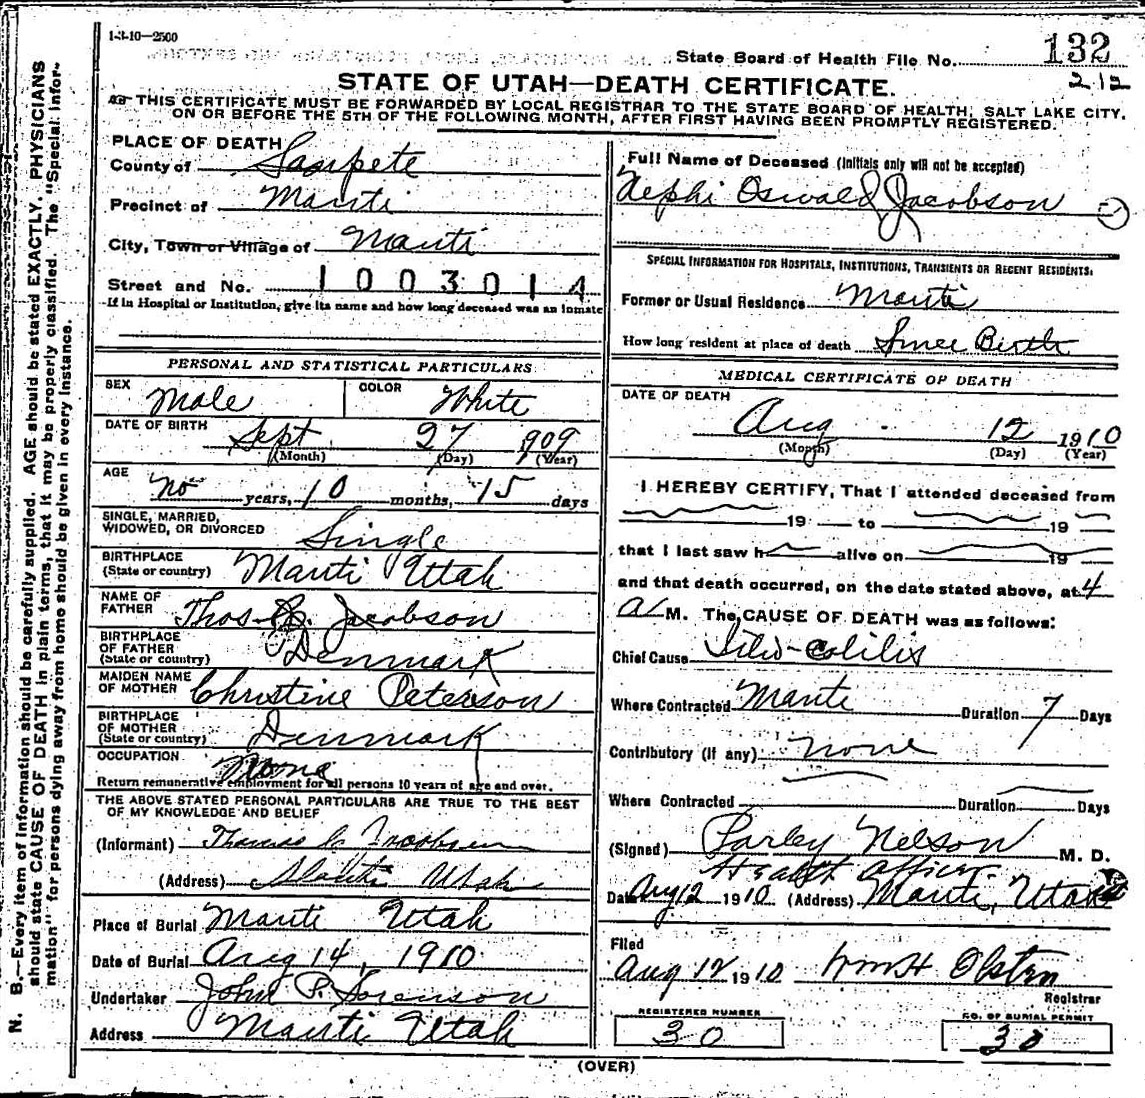 1-3-10—2500
State Board of Health File No. 132
212
STATE OF UTAH—DEATH CERTIFICATE.
THIS CERTIFICATE MUST BE FORWARDED BY LOCAL REGISTRAR TO THE STATE BOARD OF HEALTH, SALT LAKE CITY,
ON OR BEFORE THE 5TH OF THE FOLLOWING MONTH, AFTER FIRST HAVING BEEN PROMPTLY REGISTERED.
PLACE OF DEATH
County of Sanpete
Precinct of Manti
City, Town or Village of Manti
Street and No. 1003014
If in Hospital or Institution, give its name and how long deceased was an inmate
PERSONAL AND STATISTICAL PARTICULARS
SEX Male COLOR White
DATE OF BIRTH Sept 27 1909
(Month) (Day) (Year)
AGE no years, 10 months, 15 days
SINGLE, MARRIED,
WIDOWED, OR DIVORCED Single
BIRTHPLACE
(State or country) Manti Utah
NAME OF
FATHER Thos C. Jacobson
BIRTHPLACE
OF FATHER
(State or country) Denmark
MAIDEN NAME
OF MOTHER Christine Peterson
BIRTHPLACE
OF MOTHER
(State or country) Denmark
OCCUPATION None
Return remunerative employment for all persons 10 years of age and over.
THE ABOVE STATED PERSONAL PARTICULARS ARE TRUE TO THE BEST
OF MY KNOWLEDGE AND BELIEF
(Informant) Thomas C Jacobsen
(Address) Manti Utah
Place of Burial Manti Utah
Date of Burial Aug 14, 1910
Undertaker John P. Sorenson
Address Manti Utah
Full Name of Deceased (Initials only will not be accepted)
Nephi Oswald Jacobson
SPECIAL INFORMATION FOR HOSPITALS, INSTITUTIONS, TRANSIENTS OR RECENT RESIDENTS:
Former or Usual Residence Manti
How long resident at place of death Since Birth
MEDICAL CERTIFICATE OF DEATH
DATE OF DEATH
Aug 12 1910
(Month) (Day) (Year)
I HEREBY CERTIFY, That I attended deceased from
19 to 19
that I last saw h alive on 19
and that death occurred, on the date stated above, at 4
a M. The CAUSE OF DEATH was as follows:
Chief Cause Ilio-colitis
Where Contracted Manti Duration 7 Days
Contributory (if any) none
Where Contracted Duration Days
(Signed) Parley Nelson M. D.
Health Officer
Date Aug 12 1910 (Address) Manti, Utah
Filed
Aug 12 1910 Wm H Olsten
Registrar
REGISTERED NUMBER
30
NO. OF BURIAL PERMIT
30
(OVER)
N. B.—Every item of information should be carefully supplied. AGE should be stated EXACTLY. PHYSICIANS
should state CAUSE OF DEATH in plain terms, that it may be properly classified. The "Special Infor-
mation" for persons dying away from home should be given in every instance.